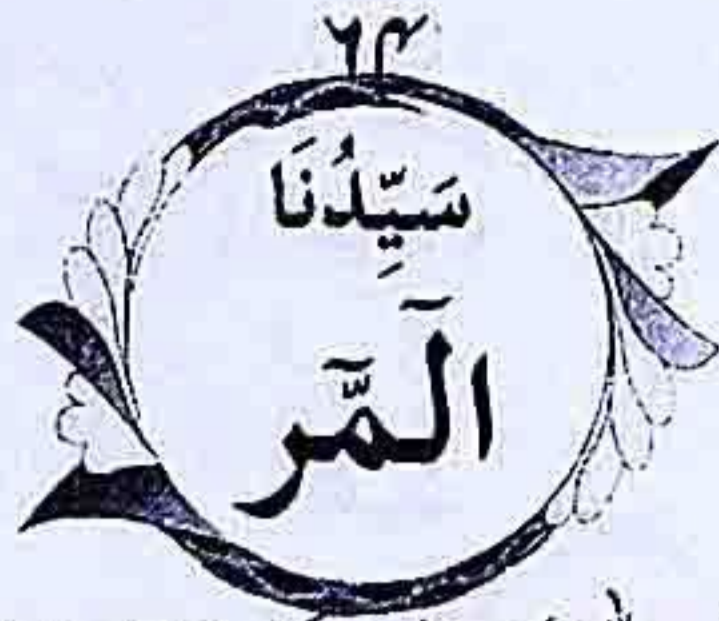 ٦٤
سَيِّدُنَا
الٓمّٓرٰ